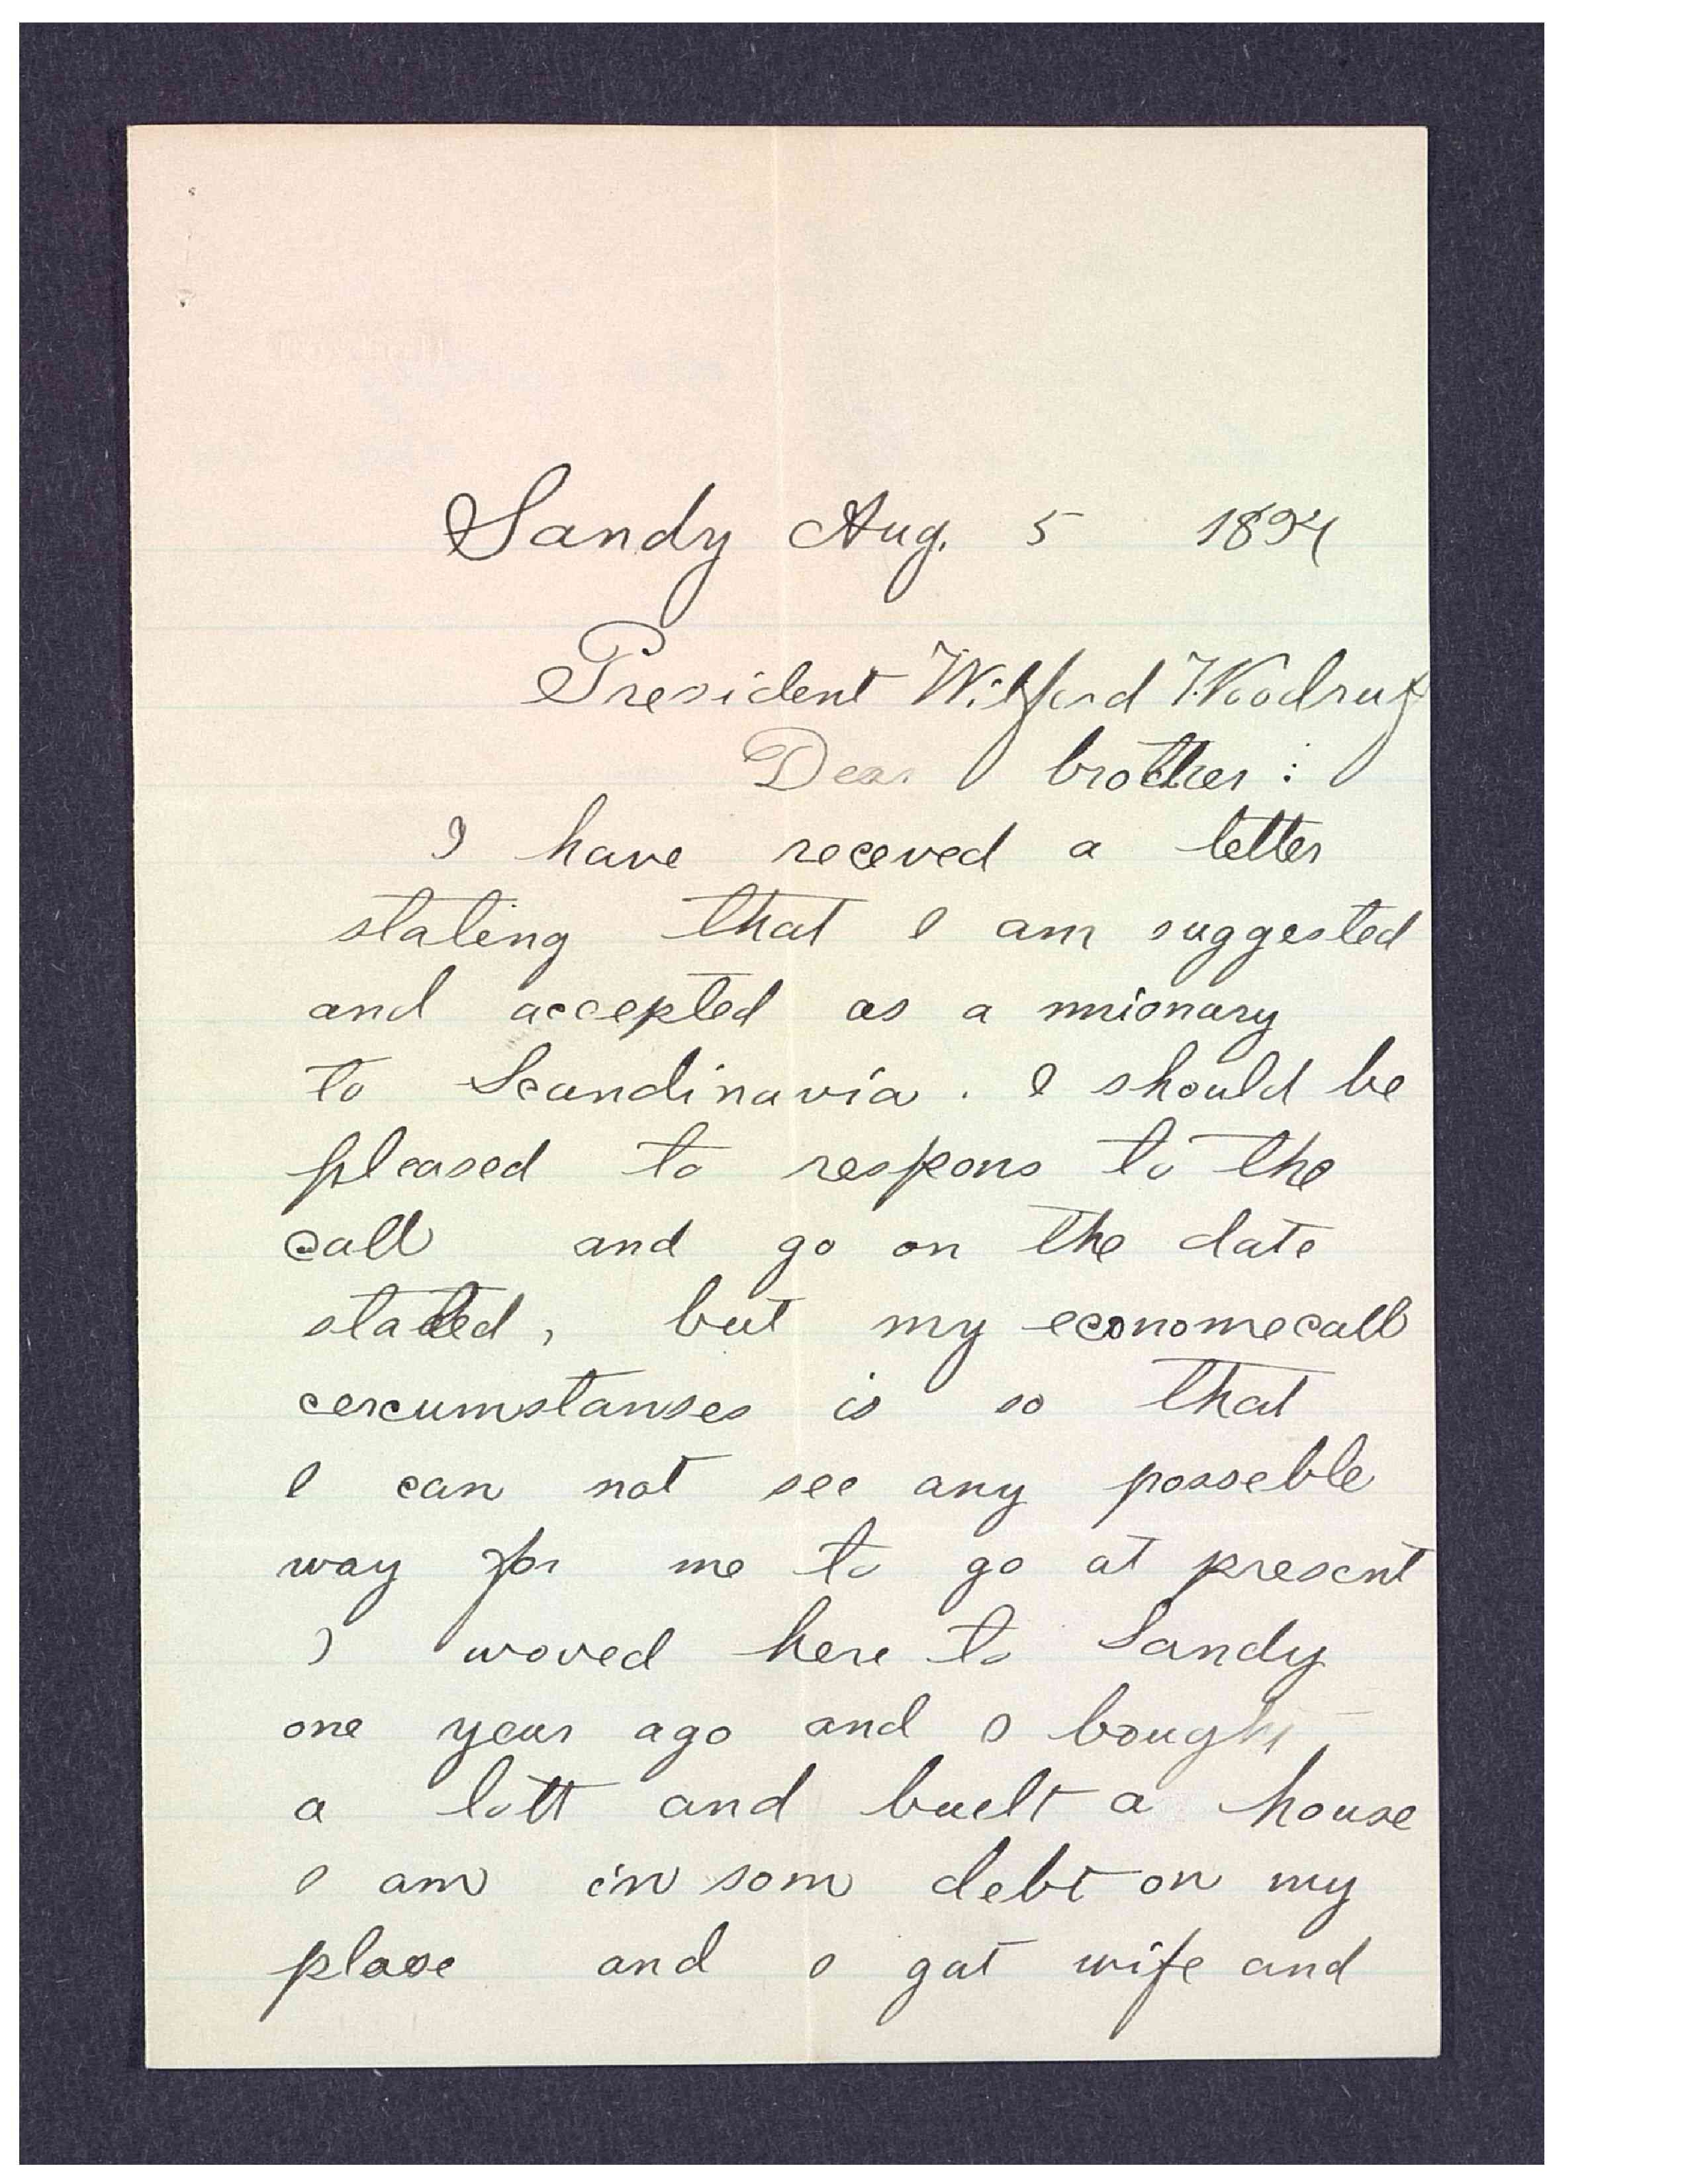 Sandy Aug. 5 1894
President Wilford Woodruf
Dear brother:
I have receved a letter
stateng that I am suggested
and accepted as a mionary
to Scandinavia. I should be
pleased to respons to the
call and go on the date
stated, but my economecall
cercumstanses is so that
I can not see any posseble
way for me to go at present
I woved here to Sandy
one year ago and I bought
a lott and buelt a house
I am in som debt on my
place and I gat wife and